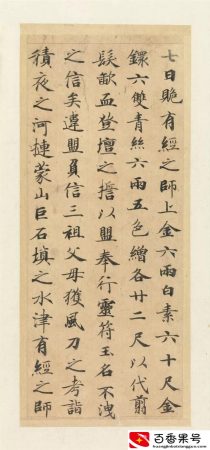 七日有經之師上金六兩白素六十尺金
鐶六雙青絲六兩五色繒各廿二尺以代翦
髮歃血登壇之以盟奉行靈符玉名不洩
之信矣違盟負信三祖父母獲風刀之考詣
積夜之河摙蒙山巨石填之水津有經之師
百番果号